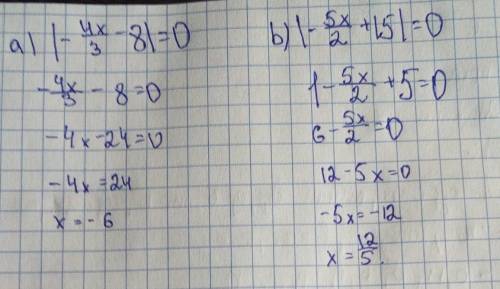 a) |-4x/3 - 8| = 0
-4x/3 - 8 = 0
-4x - 24 = 0
-4x = 24
x = -6
b) |-5x/2 + |5| = 0
1 - 5x/2 + 5 = 0
6 - 5x/2 = 0
12 - 5x = 0
-5x = -12
x = 12/5.